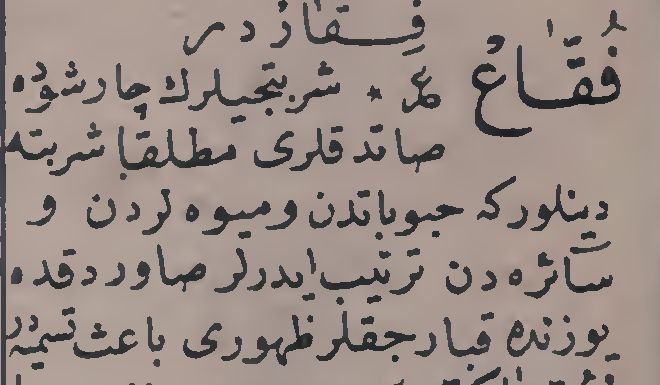 فقازدر
فُقَّاعْ عم * شربتجيلرك چارشوده
صاتدقلرى مطلقا شربته
دينلوركه حبوباتدن وميوه لردن و
سائره دن ترتيب ايدرلر صاوردقده
يوزنده قبارجقلر ظهورى باعث تسميه در